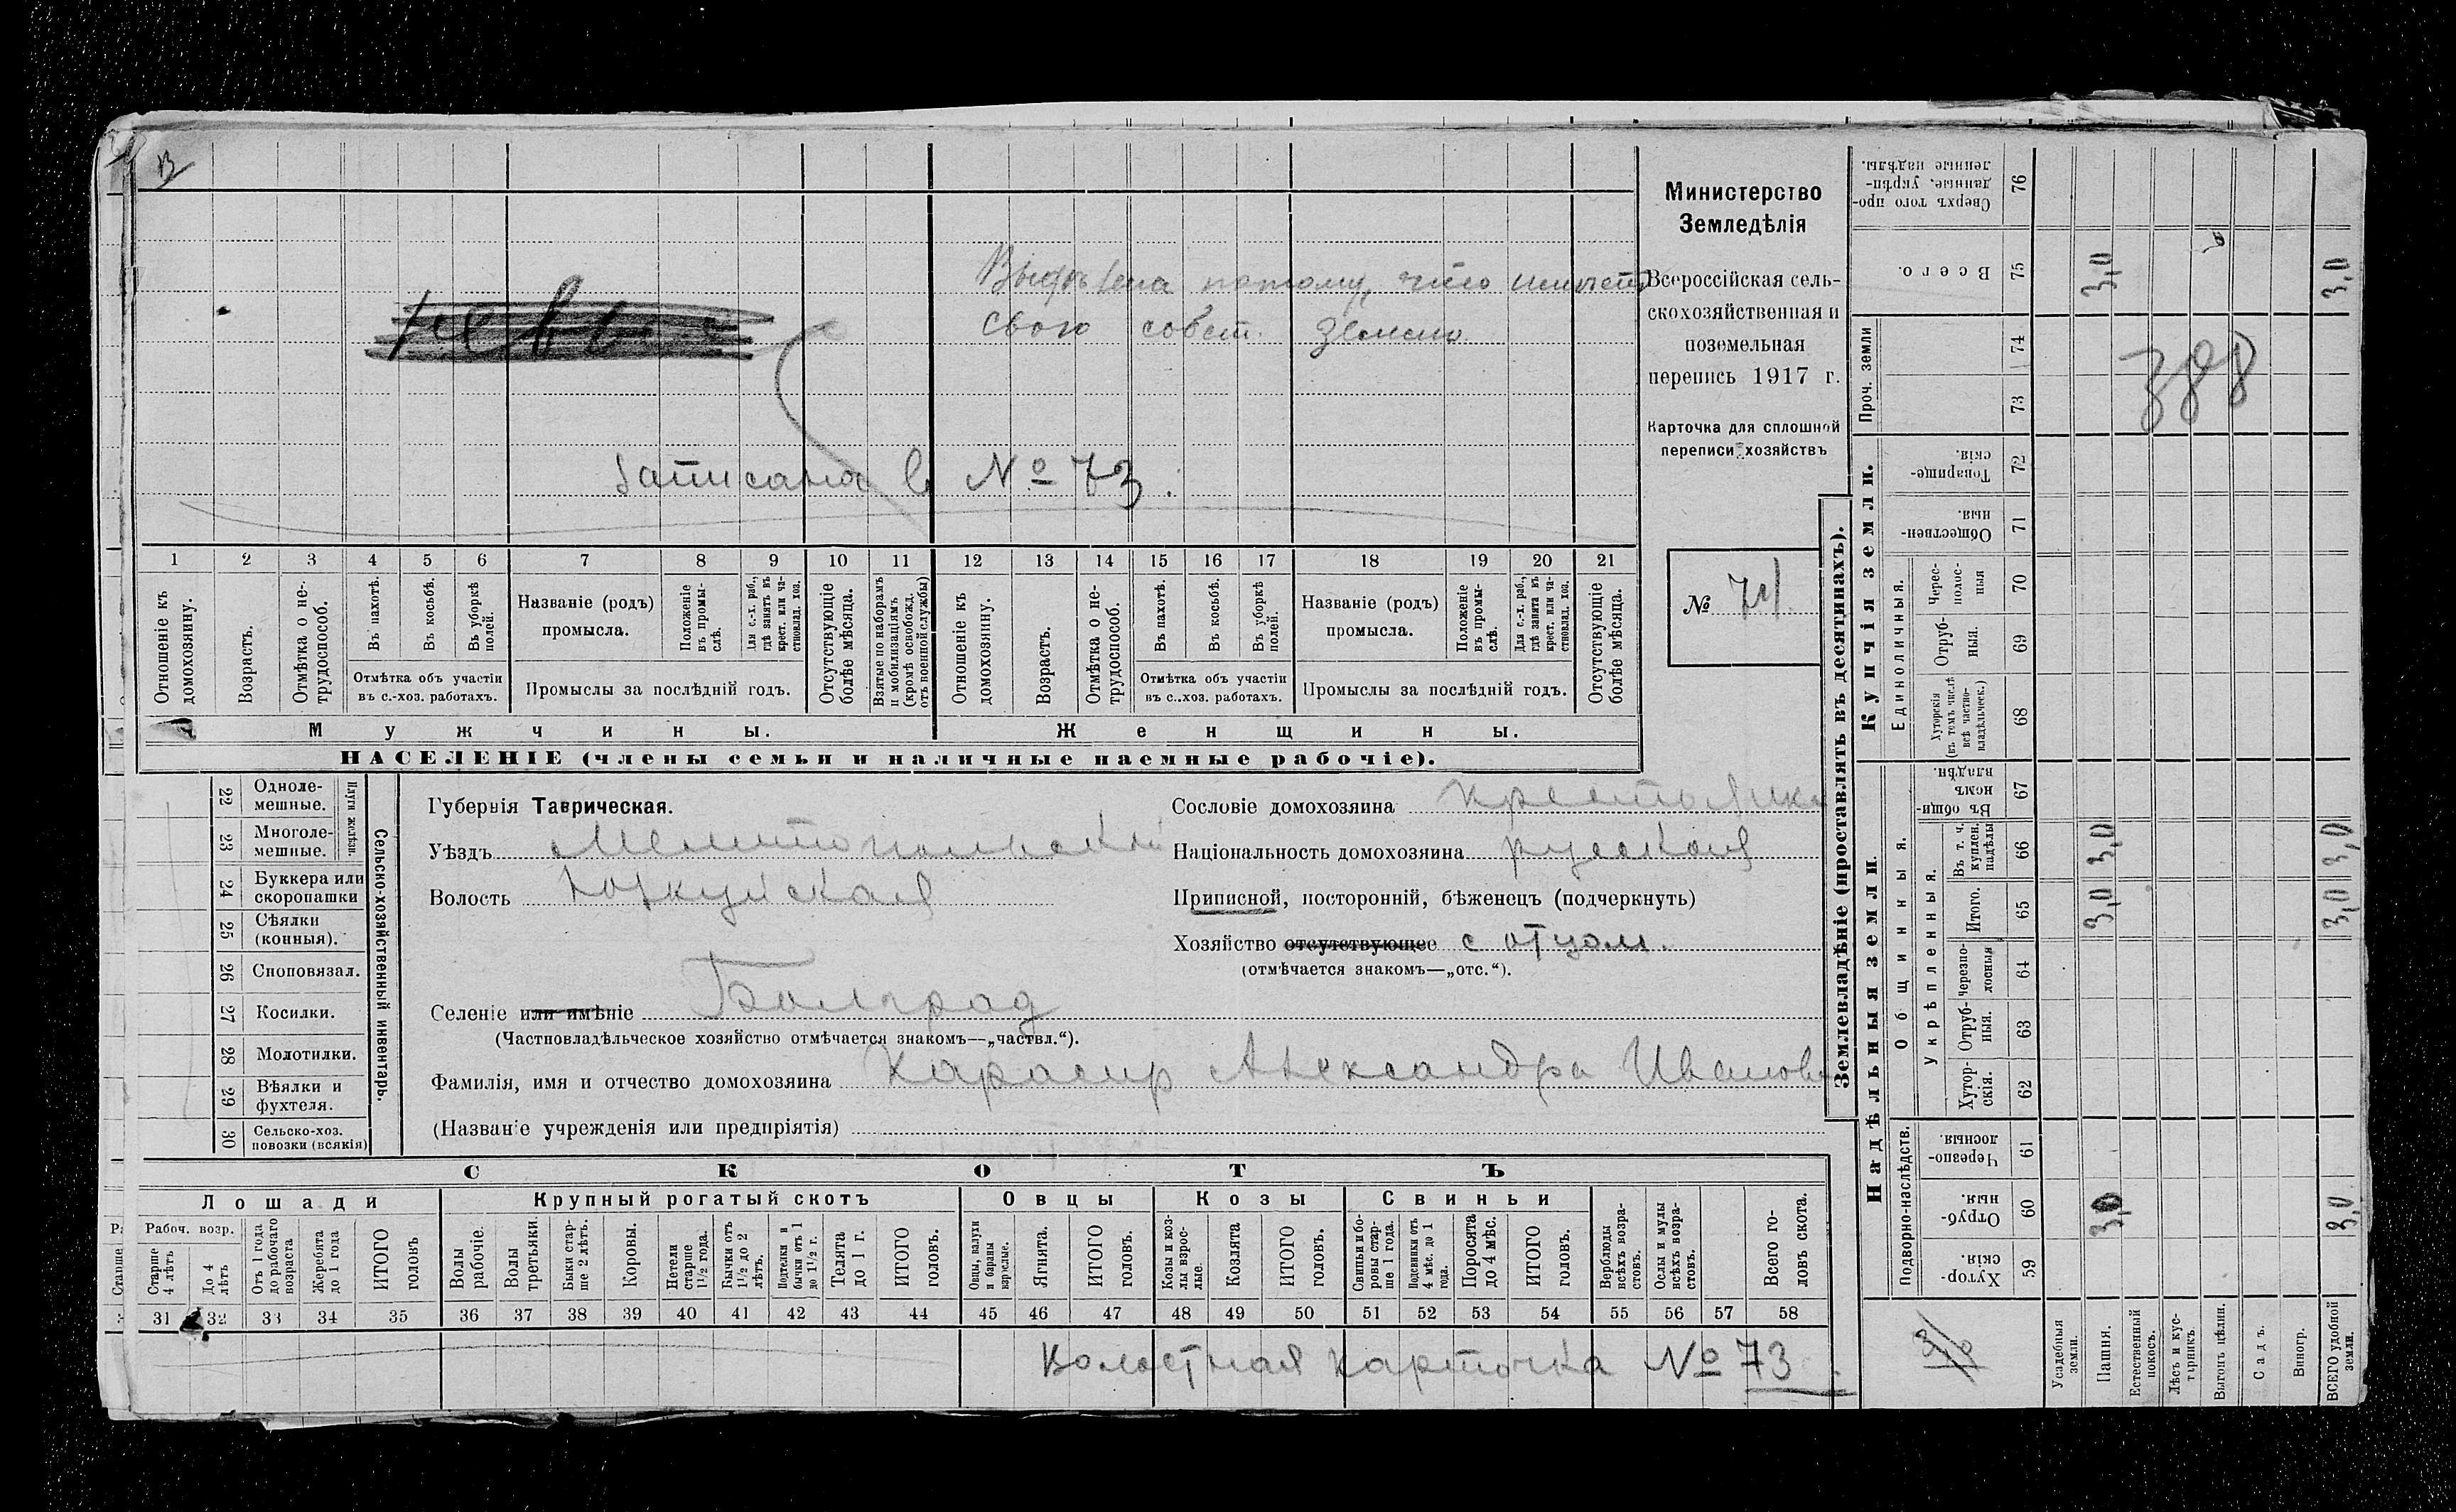 В
Выдѣлена потому, что имѣетъ
свою собст. землю.
Записана в № 73.
1 2 3 4 5 6 7 8 9 10 11 12 13 14 15 16 17 18 19 20 21
Отношеніе къ домохозяину.
Возрастъ.
Отмѣтка о не-трудоспособ.
Въ пахотѣ.
Въ косьбѣ.
Въ уборкѣ полей.
Отмѣтка объ участіи
въ с.-хоз. работахъ.
Названіе (родъ)
промысла.
Положеніе въ промы-слѣ.
Для с.-х. раб., гдѣ занятъ въ крест. или ча-стновлад. хоз.
Промыслы за послѣдній годъ.
Отсутствующіе болѣе мѣсяца.
Взятые по наборамъ и мобилизаціямъ (кромѣ освобожд. отъ военной службы)
Отношеніе къ домохозяину.
Возрастъ.
Отмѣтка о не-трудоспособ.
Въ пахотѣ.
Въ косьбѣ.
Въ уборкѣ полей.
Отмѣтка объ участіи
въ с.-хоз. работахъ.
Названіе (родъ)
промысла.
Положеніе въ промы-слѣ.
Для с.-х. раб., гдѣ занята въ крест. или ча-стновлад. хоз.
Промыслы за послѣдній годъ.
Отсутствующіе болѣе мѣсяца.
Мужчины.
Женщины.
НАСЕЛЕНІЕ (члены семьи и наличные наемные рабочіе).
Министерство
Земледѣлія
Всероссійская сель-
скохозяйственная и
поземельная
перепись 1917 г.
Карточка для сплошной
переписи хозяйствъ
№ 74
22 Одноле-мешные.
23 Многоле-мешные.
Плуги желѣзн.
24 Буккера или скоропашки
25 Сѣялки (конныя).
26 Сноповязал.
27 Косилки.
28 Молотилки.
29 Вѣялки и фухтеля.
30 Сельско-хоз. повозки (всякія)
Сельско-хозяйственный инвентарь.
Губернія Таврическая.
Уѣздъ Мелитопольскій
Волость Юзкуйская
Селеніе или имѣніе Болград
(Частновладѣльческое хозяйство отмѣчается знакомъ—„частвл.“).
Фамилія, имя и отчество домохозяина Карасир Александра Иванов
(Названіе учрежденія или предпріятія)
Сословіе домохозяина крестьянка
Національность домохозяина русская
Приписной, посторонній, бѣженецъ (подчеркнуть)
Хозяйство отсутствующее с отцом.
(отмѣчается знакомъ—„отс.“).
СКОТЪ
Лошади
Крупный рогатый скотъ
Овцы
Козы
Свиньи
Рабоч. возр.
Старше 4 лѣтъ
До 4 лѣтъ
Отъ 1 года до рабочаго возраста
Жеребята до 1 года
ИТОГО головъ
Волы рабочіе.
Волы третьяки.
Быки стар-ше 2 лѣтъ.
Коровы.
Нетели старше 1½ года.
Бычки отъ 1½ до 2 лѣтъ.
Подтелки и бычки отъ 1 до 1½ г.
Телята до 1 г.
ИТОГО головъ.
Овцы, валухи и бараны взрослые.
Ягнята.
ИТОГО головъ.
Козы и коз-лы взрос-лые.
Козлята
ИТОГО головъ.
Свиньи и бо-ровы стар-ше 1 года.
Подсвинки отъ 4 мѣс. до 1 года.
Поросята до 4 мѣс.
ИТОГО головъ.
Верблюды всѣхъ возра-стовъ.
Ослы и мулы всѣхъ возра-стовъ.
Всего го-ловъ скота.
31 32 33 34 35 36 37 38 39 40 41 42 43 44 45 46 47 48 49 50 51 52 53 54 55 56 57 58
Волостная карточка № 73
Землевладѣніе (проставлять въ десятинахъ).
Купчія земли.
Надѣльныя земли.
Проч. земли
Единоличныя.
Общинныя.
Укрѣпленныя.
Подворно-наслѣдств.
Сверхъ того про-данные, укрѣп-ленные надѣлы. 76
Всего. 75 3,0 3,0
74
73
388
Товарище-скія. 72
Обществен-ныя. 71
Черес-полос-ныя 70
Отруб-ныя. 69
Хуторскія (въ томъ числѣ всѣ частно-владѣльческ.) 68
Въ общин-номъ владѣн. 67
Въ т. ч. куплен. надѣлы 66 3,0 3,0
Итого. 65 3,0 3,0
Черезпо-лосныя 64
Отруб-ныя. 63
Хутор-скія. 62
Черезпо-лосныя. 61
Отруб-ныя. 60 3,0 3,0
Хутор-скія. 59
Усадебныя земли.
Пашня.
Естественный покосъ.
Лѣсъ и кус-тарникъ.
Выгонъ цѣлин.
Садъ.
Виногр.
ВСЕГО удобной земли.